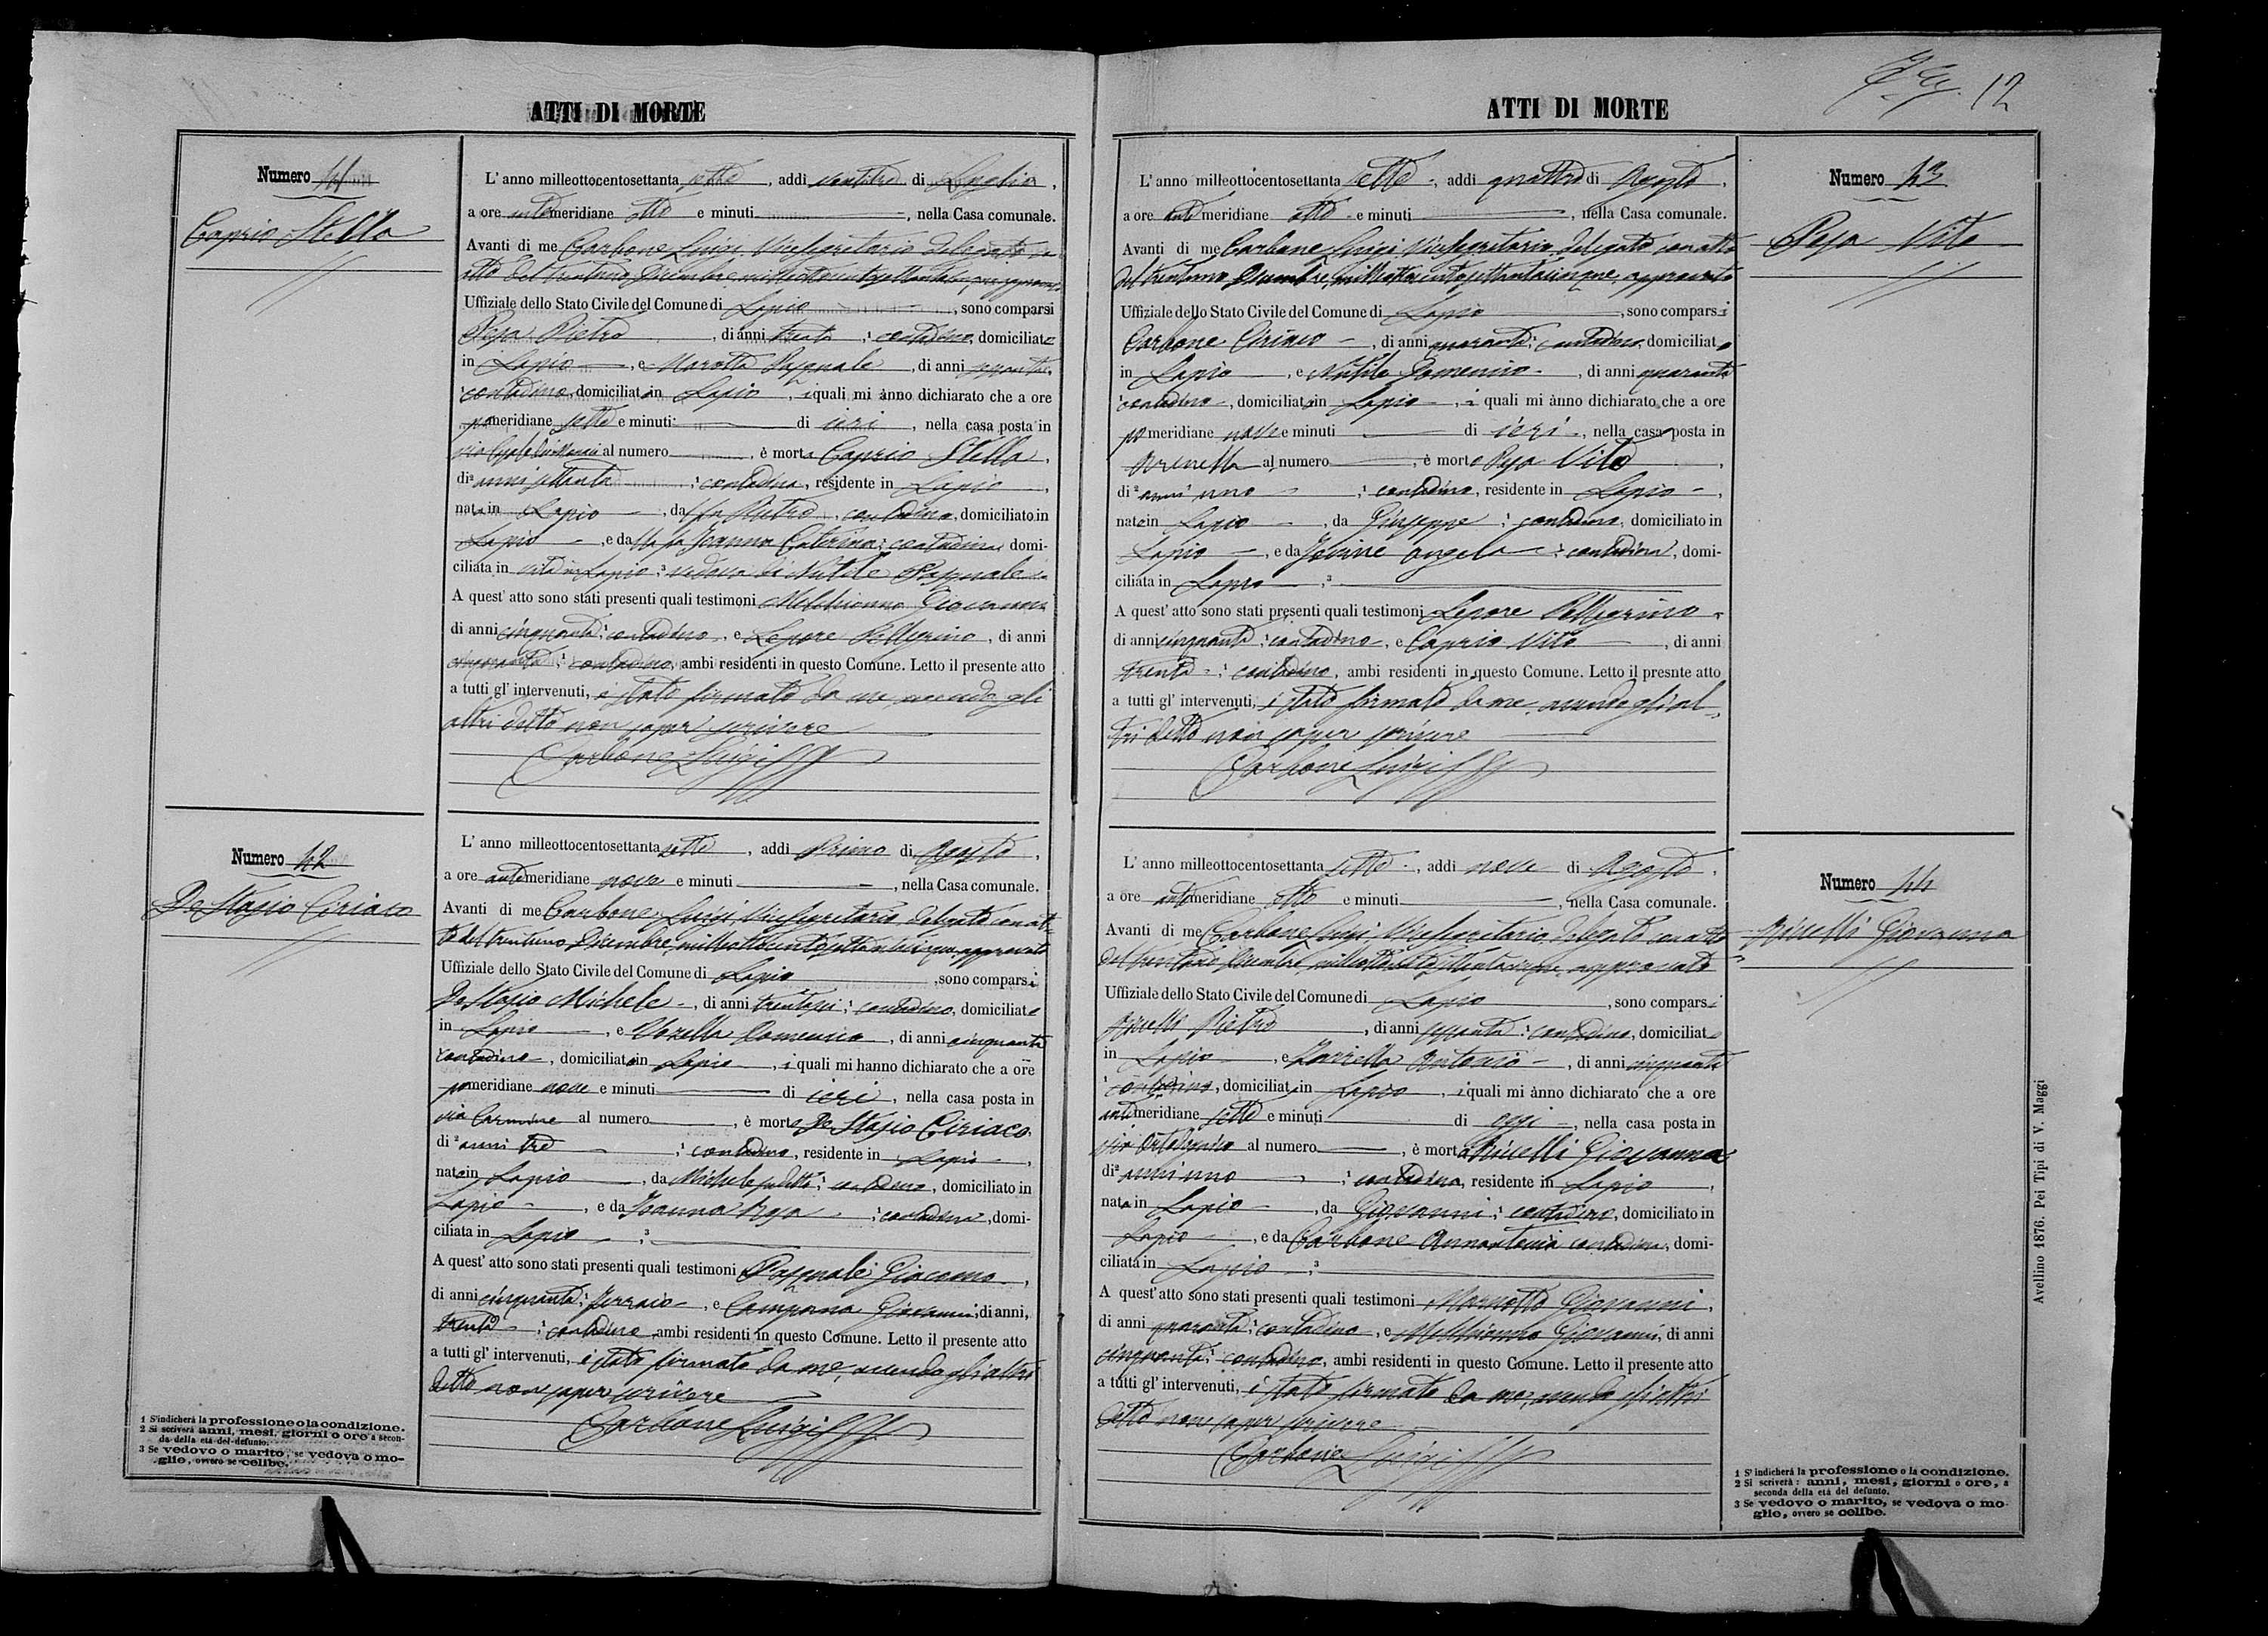 ATTI DI MORTE
Numero 41
Caprio Stella
L' anno milleottocentosettanta sette, addi ventitre di Luglio,
a ore antemeridiane otto e minuti, nella Casa comunale.
Avanti di me Carbone Luigi Vicesegretario delegato con
atto del trentuno Dicembre milleottocentosettantacinque approvato
Uffiziale dello Stato Civile del Comune di Lapio, sono comparsi
Pepa Pietro, di anni trenta, contadino, domiciliato
in Lapio, e Marotta Pasquale, di anni
contadino, domiciliato in Lapio, i quali mi ànno dichiarato che a ore
pomeridiane sette e minuti di ieri, nella casa posta in
via al numero, è morta Caprio Stella,
di anni settanta, contadina, residente in Lapio,
nata in Lapio, da fu Pietro, contadino, domiciliato in
Lapio, e da fu Joanna Caterina, contadina, domi-
ciliata in vita in Lapio, vedova di Nutile Pasquale
A quest' atto sono stati presenti quali testimoni Melchionna Giovanni
di anni cinquanta, contadino, e Lepore Pellegrino, di anni
cinquanta, contadino, ambi residenti in questo Comune. Letto il presente atto
a tutti gl' intervenuti, è stato firmato da me avendo gli
altri detto non saper scrivere
Carbone Luigi
Numero 42
De Stasio Ciriaco
L' anno milleottocentosettanta sette, addi Primo di Agosto,
a ore antemeridiane nove e minuti, nella Casa comunale.
Avanti di me Carbone Luigi Vicesegretario delegato con at-
to del trentuno Dicembre milleottocentosettantacinque approvato
Uffiziale dello Stato Civile del Comune di Lapio, sono comparsi
De Stasio Michele, di anni trentasei, contadino, domiciliato
in Lapio, e Domenico, di anni cinquanta
contadino, domiciliato in Lapio, i quali mi hanno dichiarato che a ore
pomeridiane nove e minuti di ieri, nella casa posta in
via Carmine al numero, è morto De Stasio Ciriaco
di 2 anni tre, contadino, residente in Lapio,
nato in Lapio, da Michele suddetto, contadino, domiciliato in
Lapio, e da Joanna Rosa, contadina, domi-
ciliata in Lapio, 3
A quest' atto sono stati presenti quali testimoni Pasquale Giacomo,
di anni cinquanta, ferraio, e Campana Giovanni, di anni,
trenta, contadino, ambi residenti in questo Comune. Letto il presente atto
a tutti gl' intervenuti, è stato firmato da me, avendo gli altri
detto non saper scrivere
Carbone Luigi
1 S'indicherà la professione o la condizione.
2 Si scriverà anni, mesi, giorni o ore a secon-
da della età del defunto.
3 Se vedovo o marito, se vedova o mo-
glie, ovvero se celibe.
12
ATTI DI MORTE
Numero 43
Pepa Vito
L' anno milleottocentosettanta sette, addi quattro di Agosto,
a ore antemeridiane otto e minuti, nella Casa comunale.
Avanti di me Carbone Luigi Vicesegretario delegato con atto
del trentuno Dicembre milleottocentosettantacinque, approvato
Uffiziale dello Stato Civile del Comune di Lapio, sono comparsi
Carbone Ciriaco, di anni quaranta, contadino, domiciliato
in Lapio, e Nutile Domenico, di anni quaranta
contadino, domiciliato in Lapio, i quali mi ànno dichiarato che a ore
pomeridiane nove e minuti di ieri, nella casa posta in
Arenella al numero, è morto Pepa Vito,
di 2 anni uno, contadino, residente in Lapio,
nato in Lapio, da Giuseppe, contadino, domiciliato in
Lapio, e da Angela, contadina, domi-
ciliata in Lapio, 3
A quest' atto sono stati presenti quali testimoni Lepore Pellegrino
di anni cinquanta, contadino, e Caprio Vito, di anni
trenta, contadino, ambi residenti in questo Comune. Letto il presnte atto
a tutti gl' intervenuti, è stato firmato da me, avendo gli al-
tri detto non saper scrivere
Carbone Luigi
Numero 44
Ricelli Giovanna
L' anno milleottocentosettanta sette, addi nove di Agosto,
a ore antemeridiane otto e minuti, nella Casa comunale.
Avanti di me Carbone Luigi Vicesegretario delegato con atto
del trentuno Dicembre milleottocentosettantacinque approvato
Uffiziale dello Stato Civile del Comune di Lapio, sono comparsi
Ricelli Pietro, di anni sessanta, contadino, domiciliato
in Lapio, e Zarrella Antonio, di anni cinquanta
contadino, domiciliato in Lapio, i quali mi ànno dichiarato che a ore
antimeridiane sette e minuti di oggi, nella casa posta in
via al numero, è morta Ricelli Giovanna
di 2 anni uno, contadina, residente in Lapio,
nata in Lapio, da Giovanni, contadino, domiciliato in
Lapio, e da Carbone Annantonia contadina, domi-
ciliata in Lapio, 3
A quest' atto sono stati presenti quali testimoni Giovanni,
di anni quaranta, contadino, e Melchionna Giovanni, di anni
cinquanta, contadino, ambi residenti in questo Comune. Letto il presente atto
a tutti gl' intervenuti, è stato firmato da me, avendo gli altri
detto non saper scrivere
Carbone Luigi
1 S' indicherà la professione o la condizione.
2 Si scriverà: anni, mesi, giorni o ore, a
seconda della età del defunto.
3 Se vedovo o marito, se vedova o mo-
glie, ovvero se celibe.
Avellino 1876. Pei Tipi di V. Maggi